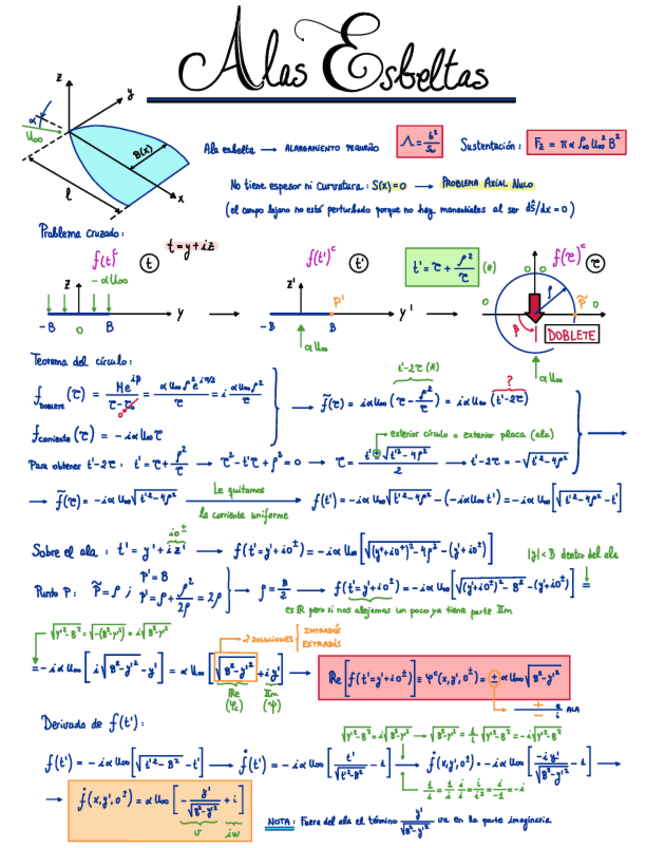 Alas Esbeltas
z
y
α
U∞
B(x)
l
x
Ala esbelta → ALARGAMIENTO PEQUEÑO
Λ = b²/Sw
Sustentación: F_z = π α ρ∞ U∞² B²
No tiene espesor ni curvatura: S(x)=0 → PROBLEMA AXIAL NULO
(el campo lejano no está perturbado porque no hay manantiales al ser dS/dx = 0)
Problema cruzado:
t = y + iz
f(t)ᶜ
t
- α U∞
z
-B
0
B
y
f(t')ᶜ
t'
z'
P'
-B
B
y'
α U∞
t' = τ + ρ²/τ (*)
f(τ)ᶜ
τ
0
0
0
0
ρ
P̃
β
DOBLETE
α U∞
Teorema del círculo:
f_DOBLETE (τ) = M e^{iβ}/(τ - τ₀) = α U∞ ρ² e^{iπ/2}/τ = i α U∞ ρ²/τ
0
f_corriente (τ) = - i α U∞ τ
t' - 2τ (*)
?
→ f̃(τ) = i α U∞ (τ - ρ²/τ) = i α U∞ (t' - 2τ)
exterior círculo = exterior placa (ala)
Para obtener t' - 2τ : t' = τ + ρ²/τ → τ² - t'τ + ρ² = 0 → τ = (t' ± √(t'² - 4ρ²))/2 → t' - 2τ = - √(t'² - 4ρ²)
→ f̃(τ) = - i α U∞ √(t'² - 4ρ²)
Le quitamos
la corriente uniforme
f(t') = - i α U∞ √(t'² - 4ρ²) - (- i α U∞ t') = - i α U∞ [√(t'² - 4ρ²) - t']
i0±
Sobre el ala : t' = y' + i z' → f(t' = y' + i0±) = - i α U∞ [√((y' + i0±)² - 4ρ²) - (y' + i0±)]
|y| < B dentro del ala
Punto P: P̃ = ρ ;
P' = B
P' = ρ + ρ²/2ρ = 2ρ
→ ρ = B/2 → f(t' = y' + i0±) = - i α U∞ [√((y' + i0±)² - B²) - (y' + i0±)] =
es ℝ pero si nos alejamos un poco ya tiene parte Im
√(y'² - B²) = √(-(B² - y'²)) = i √(B² - y'²)
2 SOLUCIONES
INTRADÓS
EXTRADÓS
= - i α U∞ [i √(B² - y'²) - y'] = α U∞ [√(B² - y'²) + i y'] →
Re
(φc)
Im
(ψ)
Re [f(t' = y' + i0±)] ≡ φᶜ(x, y', 0±) = ± α U∞ √(B² - y'²)
ALA
Derivada de f(t') :
√(y'² - B²) = i √(B² - y'²) → √(B² - y'²) = 1/i √(y'² - B²) = - i √(y'² - B²)
f(t') = - i α U∞ [√(t'² - B²) - t'] → ḟ(t') = - i α U∞ [t'/√(t'² - B²) - 1] → ḟ(x, y', 0±) = - i α U∞ [- i y'/√(B² - y'²) - 1] →
1/i = 1/i i/i = i/i² = i/-1 = - i
→ ḟ(x, y', 0±) = α U∞ [- y'/√(B² - y'²) + i]
v
iw
NOTA: Fuera del ala el término y'/√(B² - y'²) va en la parte imaginaria